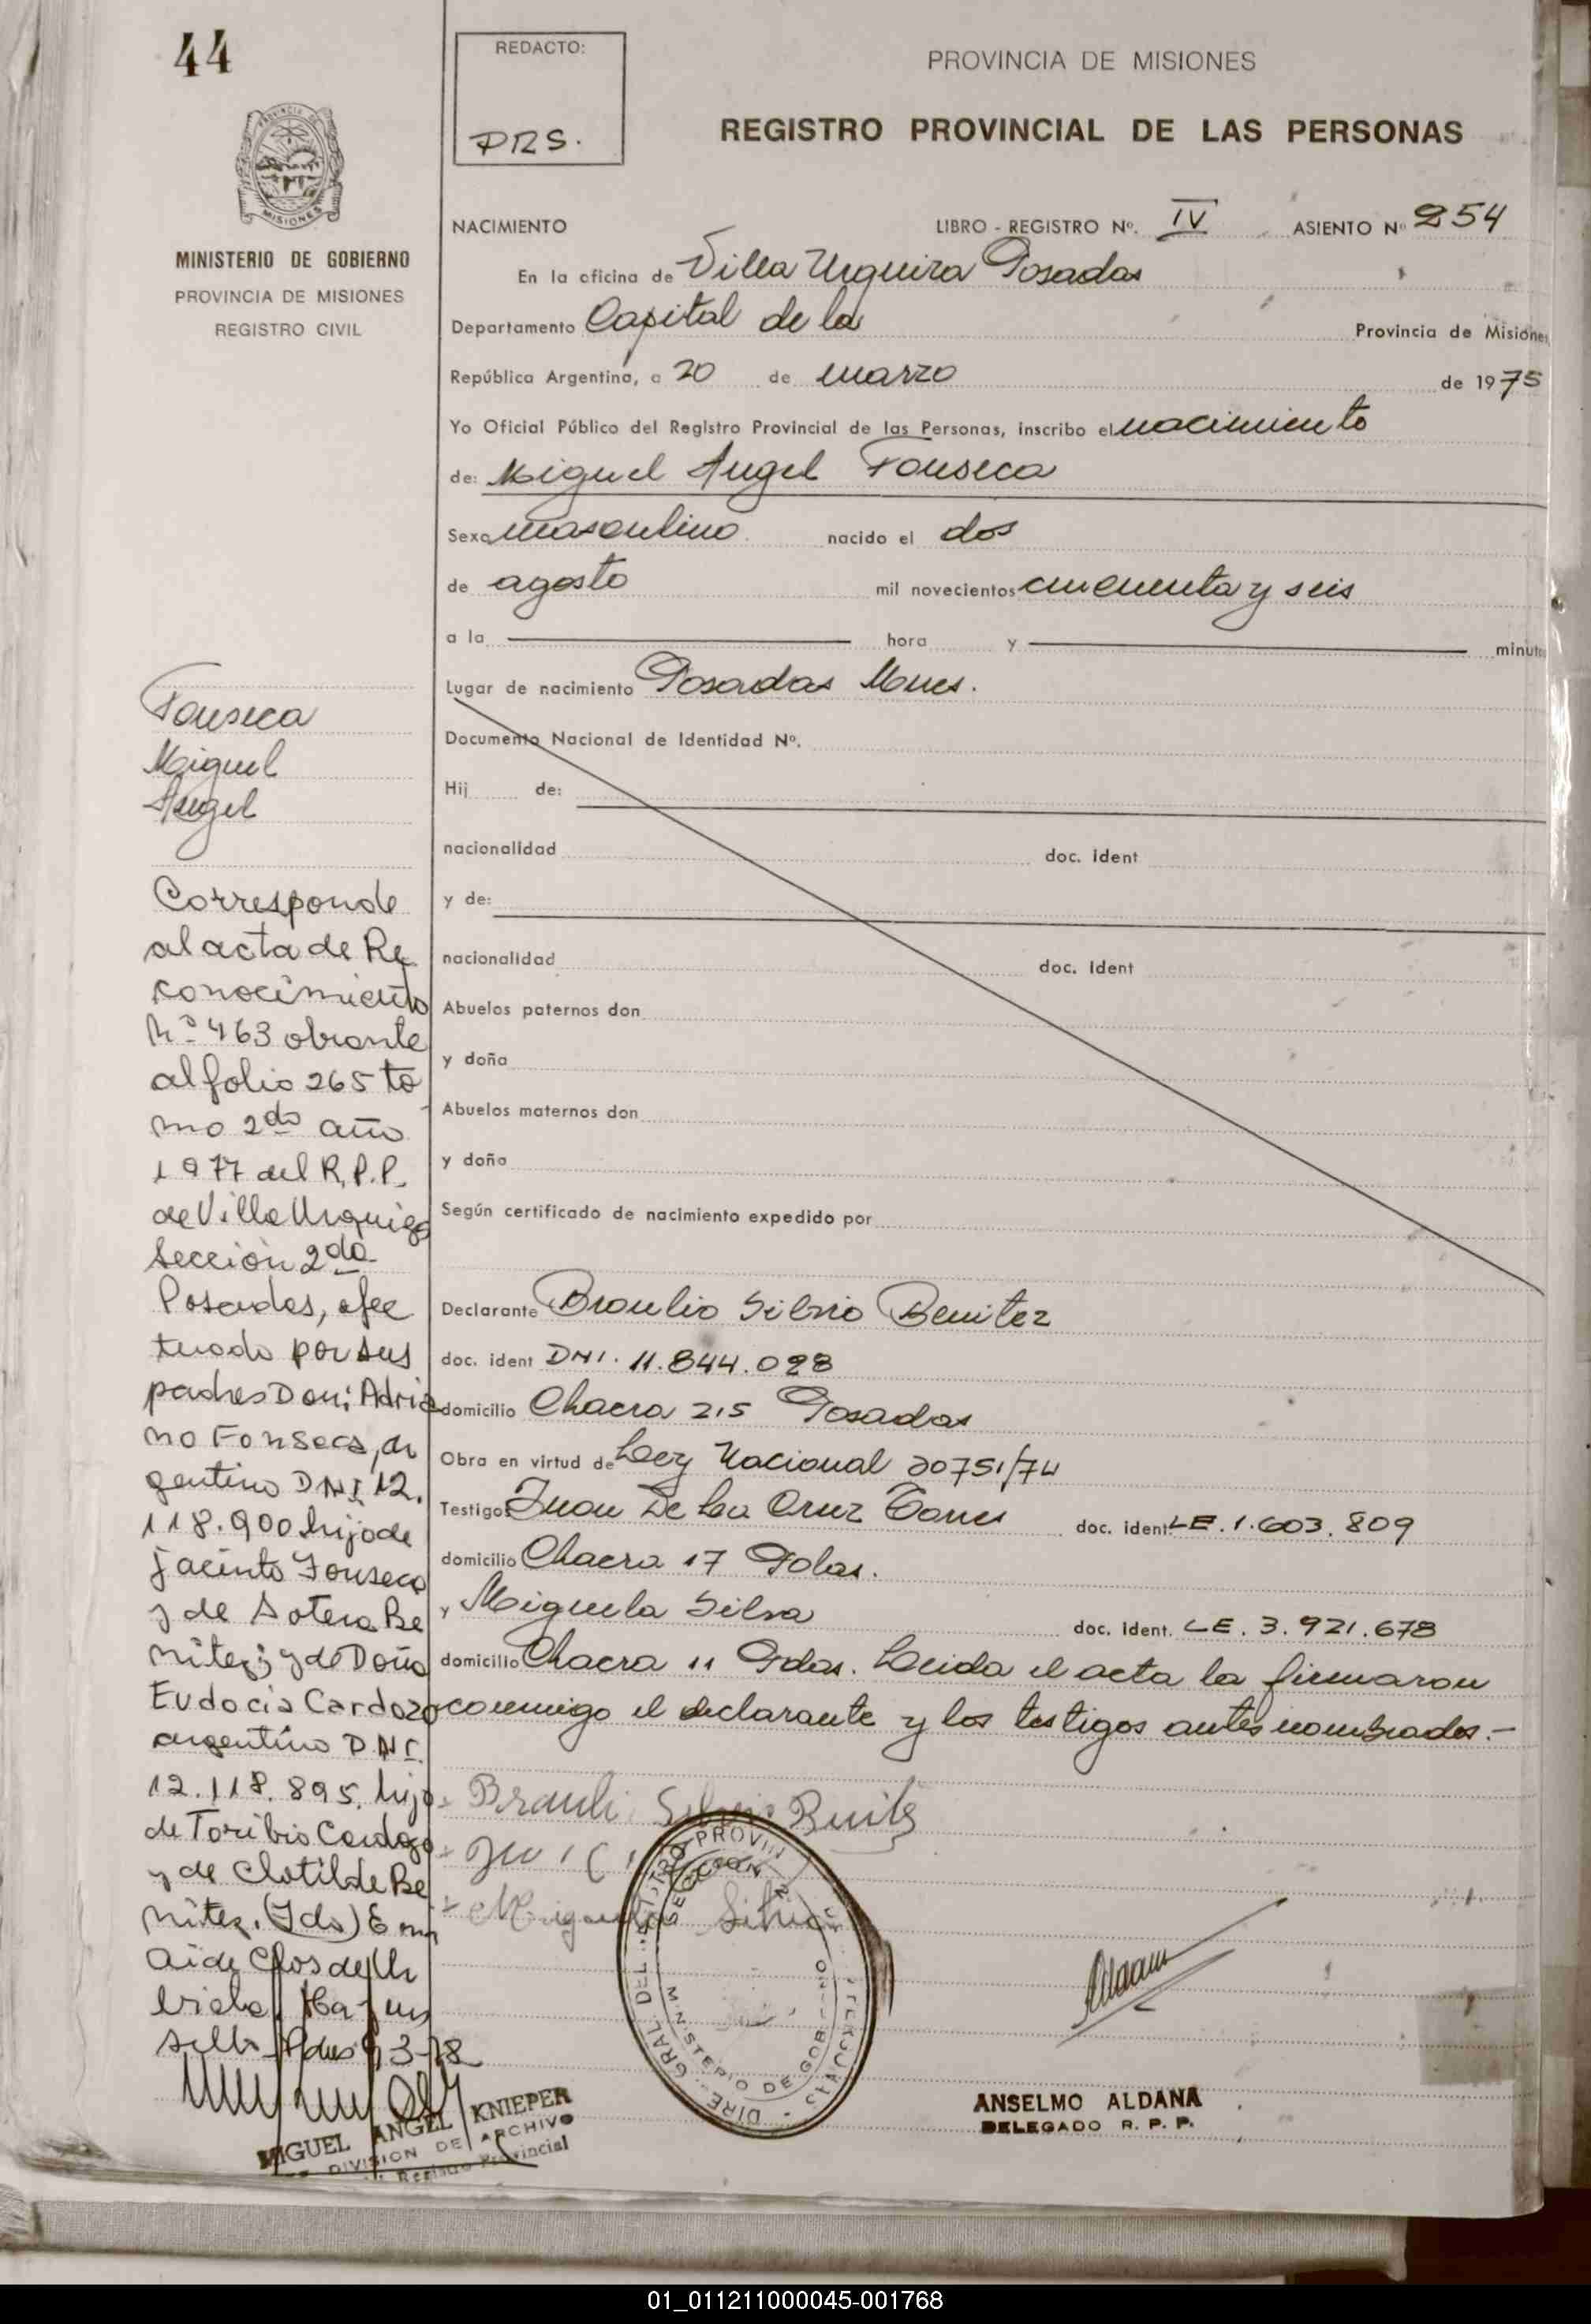 44
REDACTO:
PRS.
PROVINCIA DE MISIONES
REGISTRO PROVINCIAL DE LAS PERSONAS
MISIONES
MINISTERIO DE GOBIERNO
PROVINCIA DE MISIONES
REGISTRO CIVIL
NACIMIENTO LIBRO - REGISTRO Nº. IV ASIENTO Nº 254
En la oficina de Villa Urquiza Posadas
Departamento Capital de la Provincia de Misiones
República Argentina, a 20 de marzo de 1975
Yo Oficial Público del Registro Provincial de las Personas, inscribo el nacimiento
de: Miguel Angel Fonseca
Sexo masculino nacido el dos
de agosto mil novecientos cincuenta y seis
a la hora y minutos
Lugar de nacimiento Posadas Mnes.
Documento Nacional de Identidad Nº.
Hij de:
nacionalidad doc. ident
y de:
nacionalidad doc. Ident
Abuelos paternos don
y doña
Abuelos maternos don
y doña
Según certificado de nacimiento expedido por
Declarante Braulio Silvio Benitez
doc. ident DNI. 11.844.098
domicilio Chacra 215 Posadas
Obra en virtud de Ley Nacional 20751/74
Testigos Juan De la Cruz Torres doc. ident LE. 1.603.809
domicilio Chacra 17 Pdas.
y Miguela Silva doc. ident. LE. 3.921.678
domicilio Chacra 11 Pdas. Leida el acta la firmaron
conmigo el declarante y los testigos antes nombrados.-
Fonseca
Miguel
Angel
Corresponde
al acta de Re
conocimiento
Nº 463 obrante
al folio 265 to
mo 2do año
1977 del R.P.P.
de Villa Urquiza
Sección 2da
Posadas, efec
tuado por sus
padres Don: Adria
no Fonseca, ar
gentino DNI 12.
118.900 hijo de
Jacinto Fonseca
y de Sotera Be
nitez; y de Doña
Eudocia Cardozo
argentino DNI.
12.118.895. hija
de Toribio Cardozo
y de Clotilde Be
nitez. (Fdo) Em
Hay un
sello Pdas 9 3-78
MIGUEL ANGEL KNIEPER
DIVISION DE ARCHIVO
Registro Provincial
Silvio
DIRE. GRAL. DEL REGISTRO PROVIN
SECCION
MINISTERIO DE GOBIERNO
ANSELMO ALDANA
DELEGADO R. P. P.
01_011211000045-001768